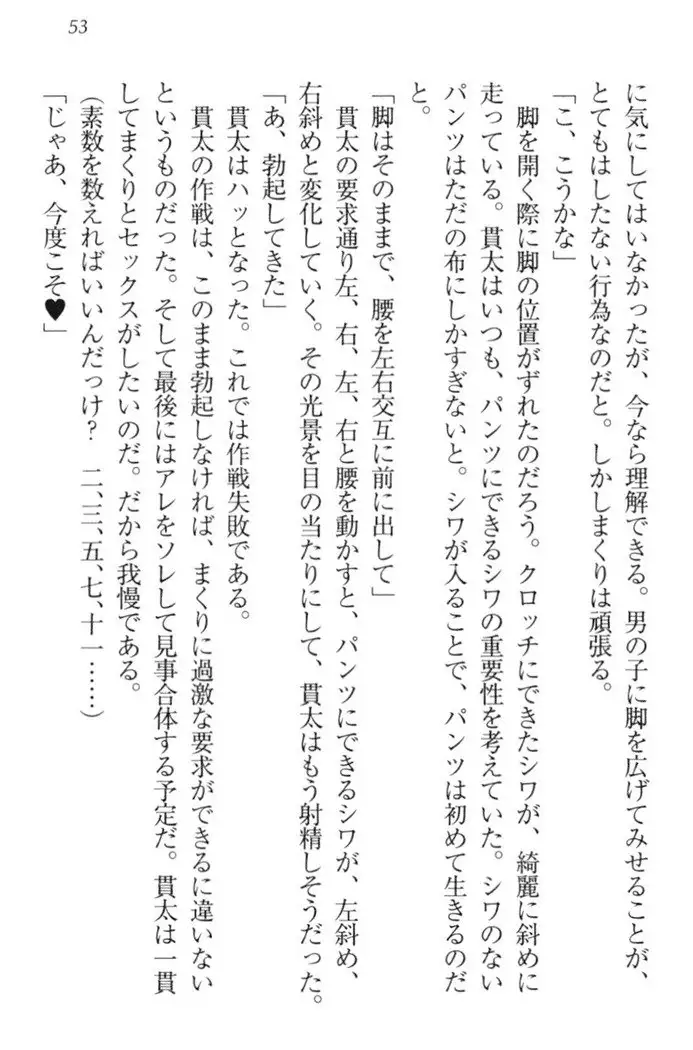 53
に気にしてはいなかったが、今なら理解できる。男の子に脚を広げてみせることが、
とてもはしたない行為なのだと。しかしまくりは頑張る。
「こ、こうかな」
脚を開く際に脚の位置がずれたのだろう。クロッチにできたシワが、綺麗に斜めに
走っている。貫太はいつも、パンツにできるシワの重要性を考えていた。シワのない
パンツはただの布にしかすぎないと。シワが入ることで、パンツは初めて生きるのだ
と。
「脚はそのままで、腰を左右交互に前に出して」
貫太の要求通り左、右、左、右と腰を動かすと、パンツにできるシワが、左斜め、
右斜めと変化していく。その光景を目の当たりにして、貫太はもう射精しそうだった。
「あ、勃起してきた」
貫太はハッとなった。これでは作戦失敗である。
貫太の作戦は、このまま勃起しなければ、まくりに過激な要求ができるに違いない
というものだった。そして最後にはアレをソレして見事合体する予定だ。貫太は一貫
してまくりとセックスがしたいのだ。だから我慢である。
（素数を数えればいいんだっけ？　二、三、五、七、十一……）
「じゃあ、今度こそ♥」